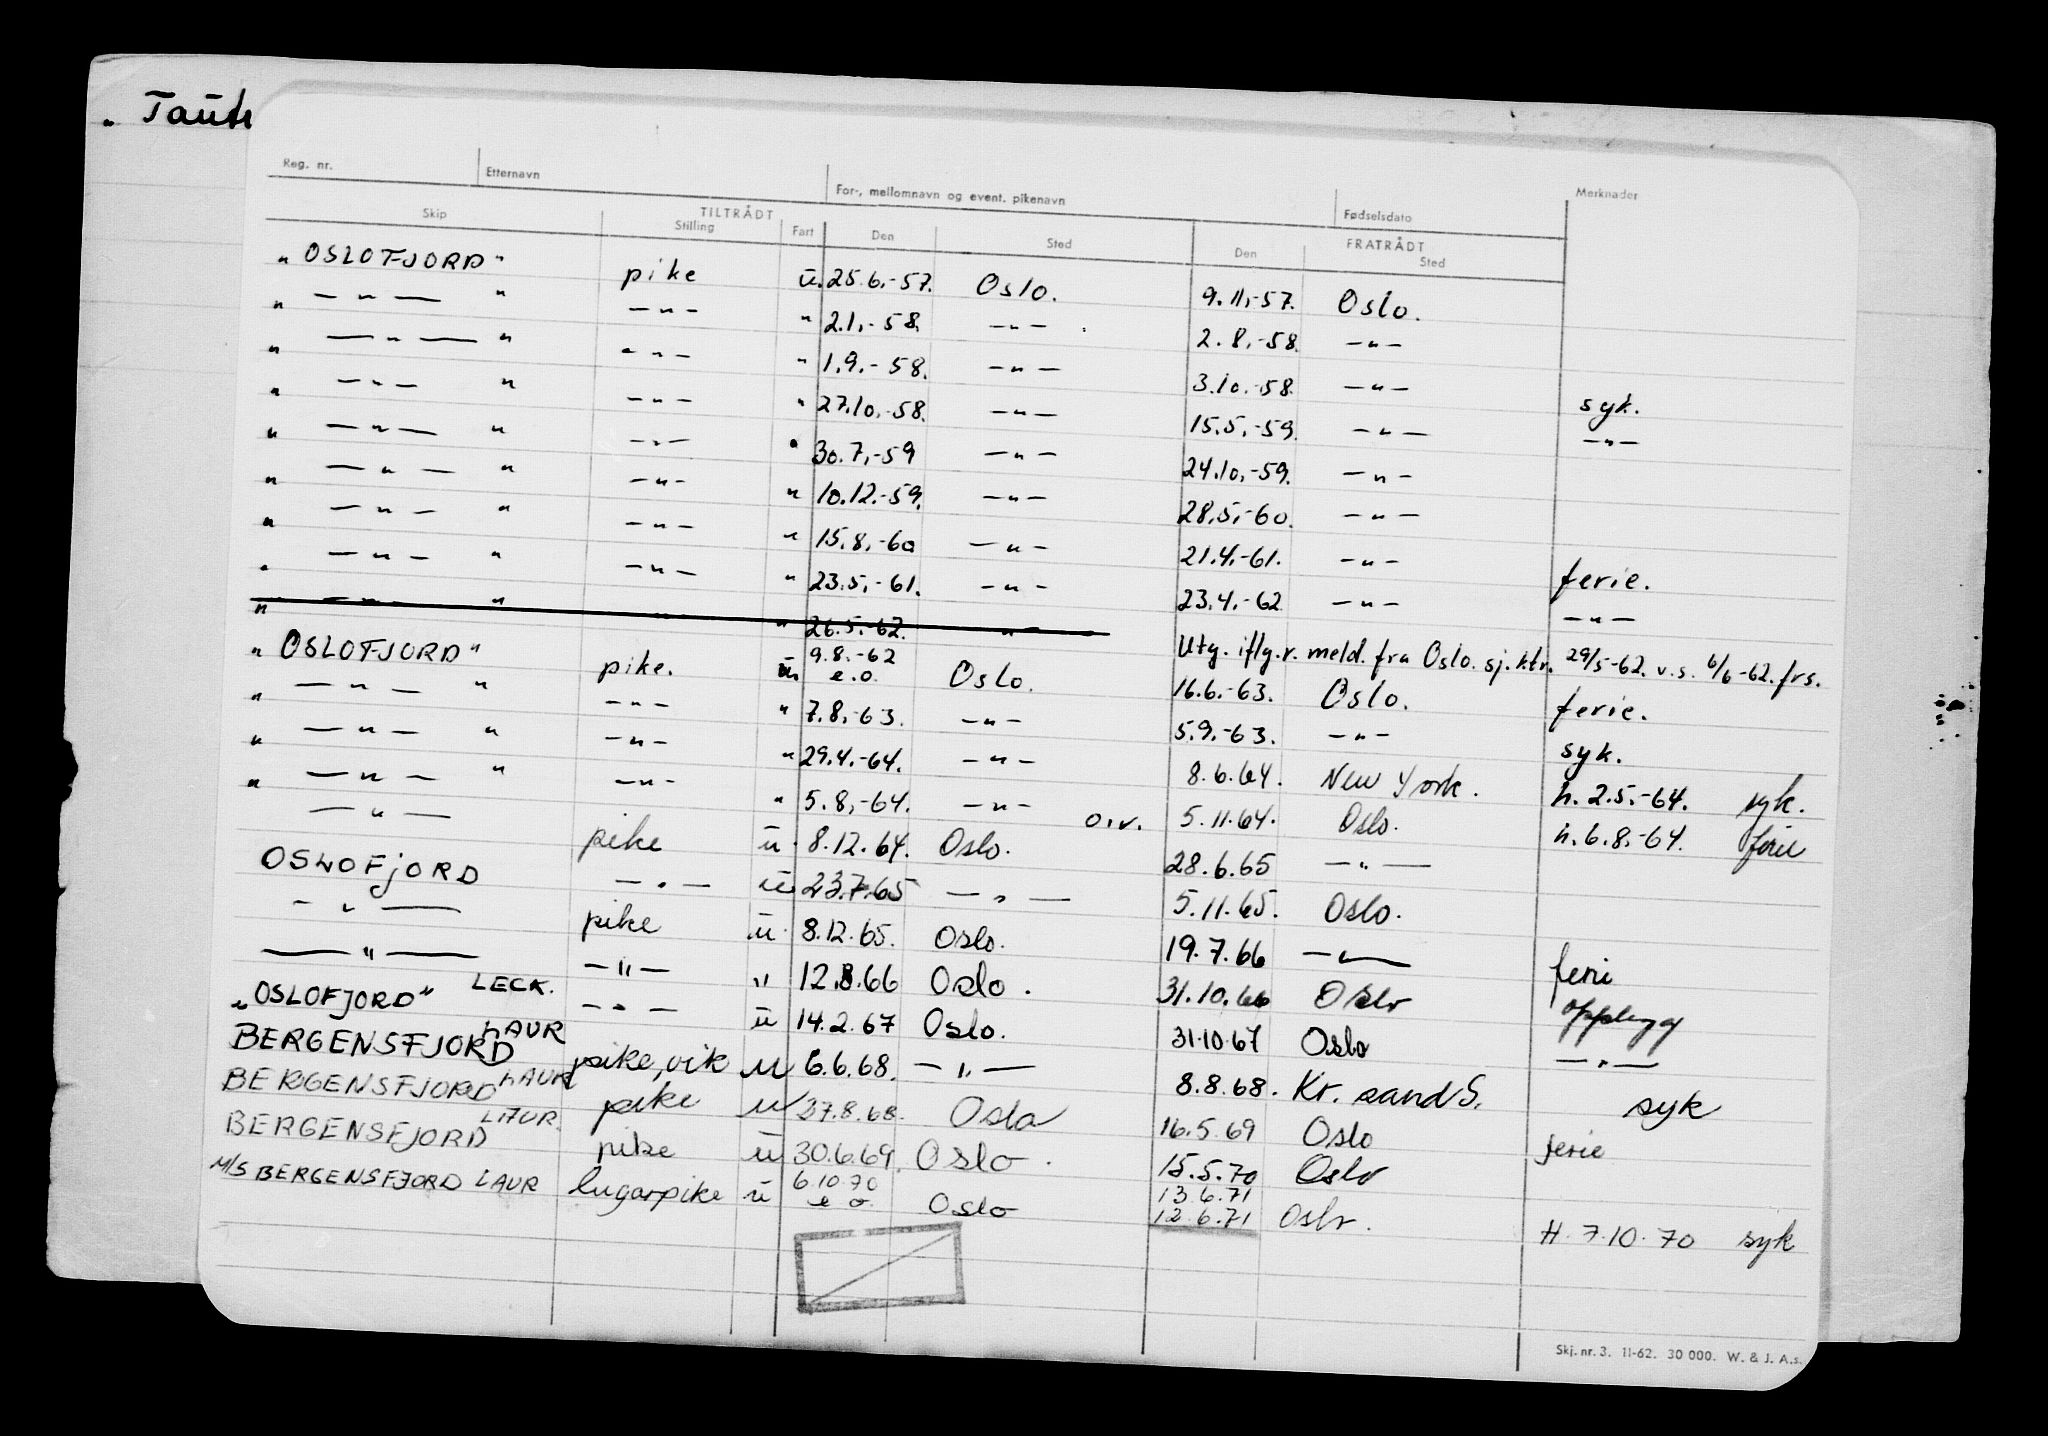 Reg. nr. Etternavn For-, mellomnavn og event. pikenavn Fødselsdato Merknader
TILTRÅDT FRATRÅDT
Skip Stilling Fart Den Sted Den Sted
„ OSLOFJORD " pike ū. 25.6.-57. Oslo. 9.11.-57. Oslo.
" — " — " — " — " 2.1.-58. — " — 2.8.-58. — " —
" — " — " — " — " 1.9.-58. — " — 3.10.-58. — " — syk.
" — " — " — " — " 27.10.-58. — " — 15.5.-59. — " — — " —
" — " — " — " — " 30.7.-59 — " — 24.10.-59. — " —
" — " — " — " — " 10.12.-59. — " — 28.5.-60. — " —
" — " — " — " — " 15.8.-60 — " — 21.4.-61. — " — ferie.
" — " — " — " — " 23.5.-61. — " — 23.4.-62 — " — — " —
" — " — " " " 26.5.-62. — " — Utg. iflg. r. meld. fra Oslo. sj. ktr. 29/5-62. v.s. 6/6-62. frs.
„ OSLOFJORD " pike. ū. 9.8.-62 e.o. Oslo. 16.6.-63. Oslo. ferie.
" — " — " — " — " 7.8.-63. — " — 5.9.-63. — " — syk.
" — " — " — " — " 29.4.-64. — " — 8.6.64. New York. h. 2.5.-64. syk.
" — " — " — " — " 5.8.-64. — " — o.v. 5.11.64. Oslo. h. 6.8.-64. ferie
— " — pike ū 8.12.64. Oslo. 28.6.65 — " —
OSLOFJORD — " — ū 23.7.65 — " — 5.11.65. Oslo.
— " — pike ū 8.12.65. Oslo. 19.7.66 — " — ferie
— " — — " — " 12.8.66 Oslo. 31.10.66 Oslo opplegg
„OSLOFJORD" LECK. — " — ū 14.2.67 Oslo. 31.10.67 Oslo — " —
BERGENSFJORD LAUR pike, vik u 6.6.68. — " — 8.8.68. Kr. sand S. syk
BERGENSFJORD LAUR pike u 27.8.68. Oslo 16.5.69 Oslo ferie
BERGENSFJORD LAUR. pike ū 30.6.69. Oslo. 15.5.70 Oslo
M/S BERGENSFJORD LAUR lugarpike ū 6.10.70 e o. Oslo 13.6.71 12.6.71 Oslo. H. 7.10.70 syk
Skj. nr. 3. 11-62. 30 000. W. & J. A.s.